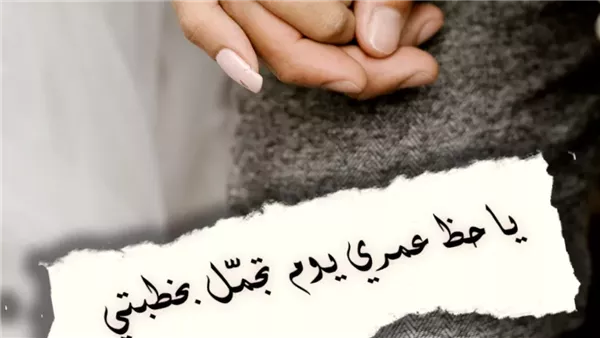 يا حظ عمري يوم تجمّل بخطبتي